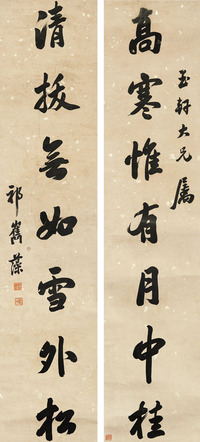 高寒惟有月中桂
玉軒大兄屬
清拔無如雪外松
祁寯藻